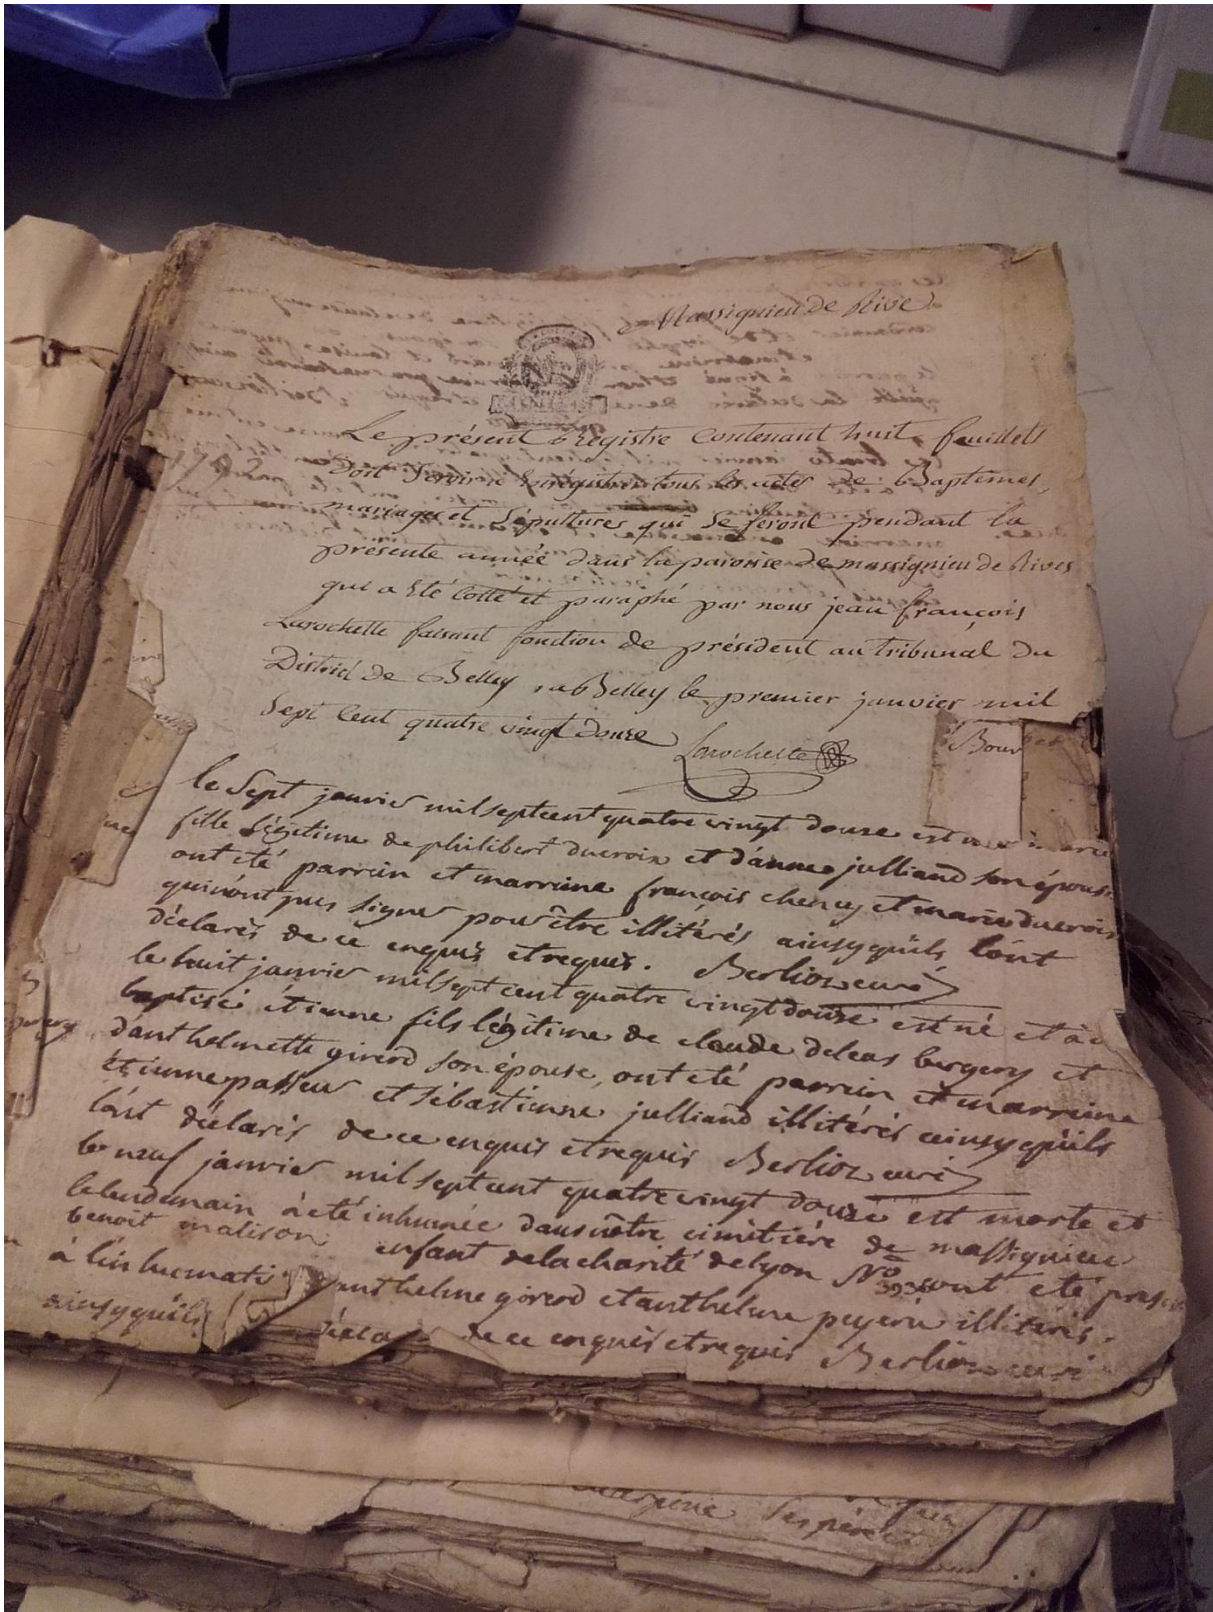 Massignieu de Rive
Le présent Registre Contenant huit feuillets
Doit Servir à Enrégistrer tous les actes de Baptêmes,
mariages et Sépultures qui Se feront pendant la
présente année dans la paroisse de massignieu de Rives
qui a Eté Cotté et paraphé par nous jean françois
Larochette faisant fonction de président au Tribunal du
District de Belley, a Belley le premier janvier mil
Sept Cent quatre vingt Douze
Larochette
Bour
le Sept janvier mil sept cent quatre vingt douze est
fille légitime de philibert ducroix et d'anne julliand son épouse
ont été parrein et marreine françois chency et marie ducroix
qui n'ont pas signer pour être illitérés ainsy qu'ils l'ont
déclarés de ce enquis et requis. Berlioz curé
le huit janvier mil sept cent quatre vingt douze est né et à
baptisé étienne fils légitime de claude deleas bergery et
d'anthelmette girerd son épouse, ont été parrein et marreine
étienne passeur et sébastienne julliand illitérés ainsy qu'ils
l'ont déclarés de ce enquis et requis Berlioz curé
le neuf janvier mil sept cent quatre vingt douze est morte et
le lendemain à été inhumée dans nôtre cimitière de massignieu
benoit matison enfant de la charité de lyon No ont été
à l'inhumati anthelme girerd et anthelme illitérés.
ainsy qu'ils de ce enquis et requis Berlioz curé
marreine